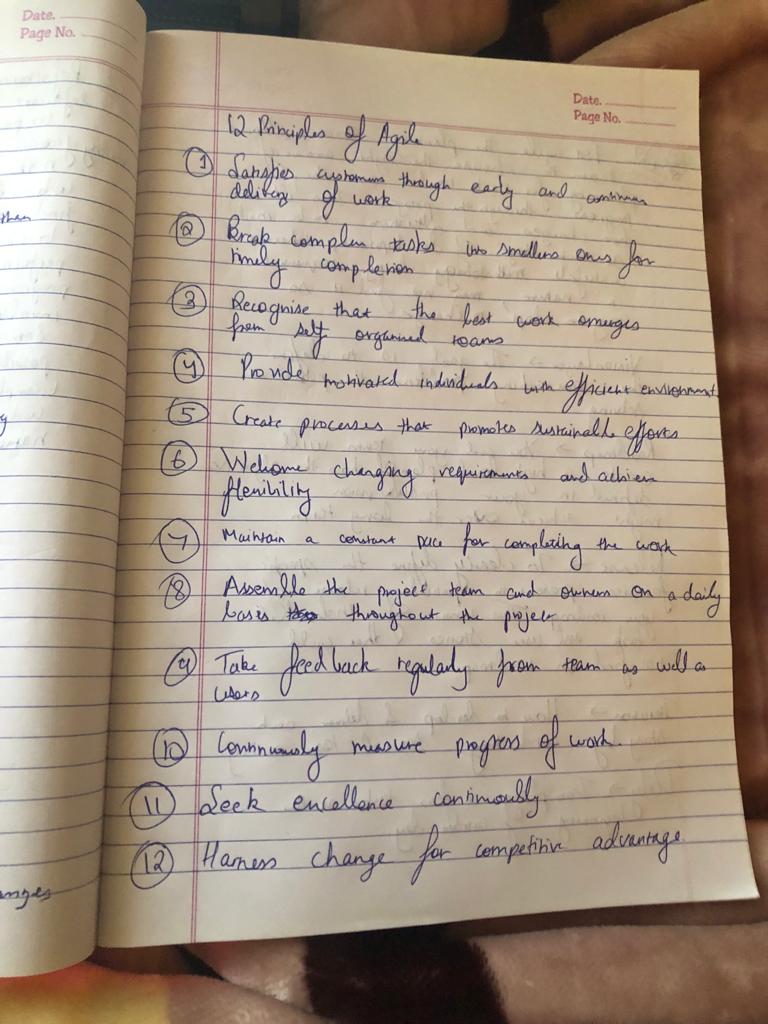 Date.
Page No.
than
y
anges
Date.
Page No.
12 Principles of Agile
1 Satisfies customers through early and continuous
delivery of work
2 Break complex tasks into smallers ones for
timely completion
3 Recognise that the best work emerges
from self organised teams
4 Provide motivated individuals with efficient environment
5 Create processes that promotes sustainable efforts
6 Welcome changing requirements and achieve
flexibility
7 Maintain a constant pace for completing the work
8 Assemble the project team and owners on a daily
basis throughout the project
9 Take feedback regularly from team as well as
users
10 Continuously measure progress of work.
11 Seek excellence continuously.
12 Harness change for competitive advantage.